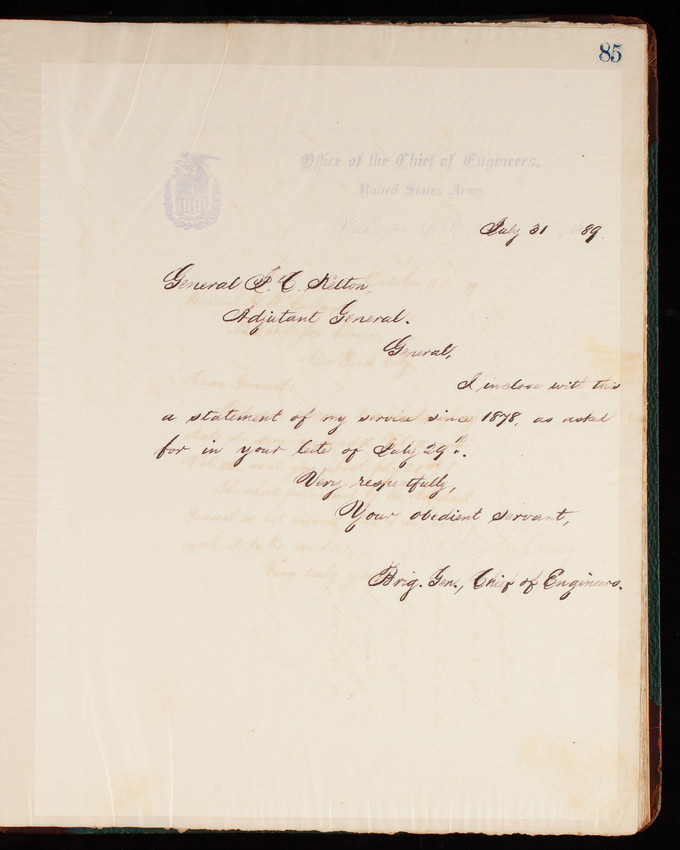 85
Office of the Chief of Engineers,
United States Army.
Washington, D.C. July 31 89.
General J. C. Kelton,
Adjutant General.
General,
I inclose with this
a statement of my service since 1878, as asked
for in your lete of July 29th.
Very respectfully,
Your obedient servant,
Brig. Gen., Chief of Engineers.